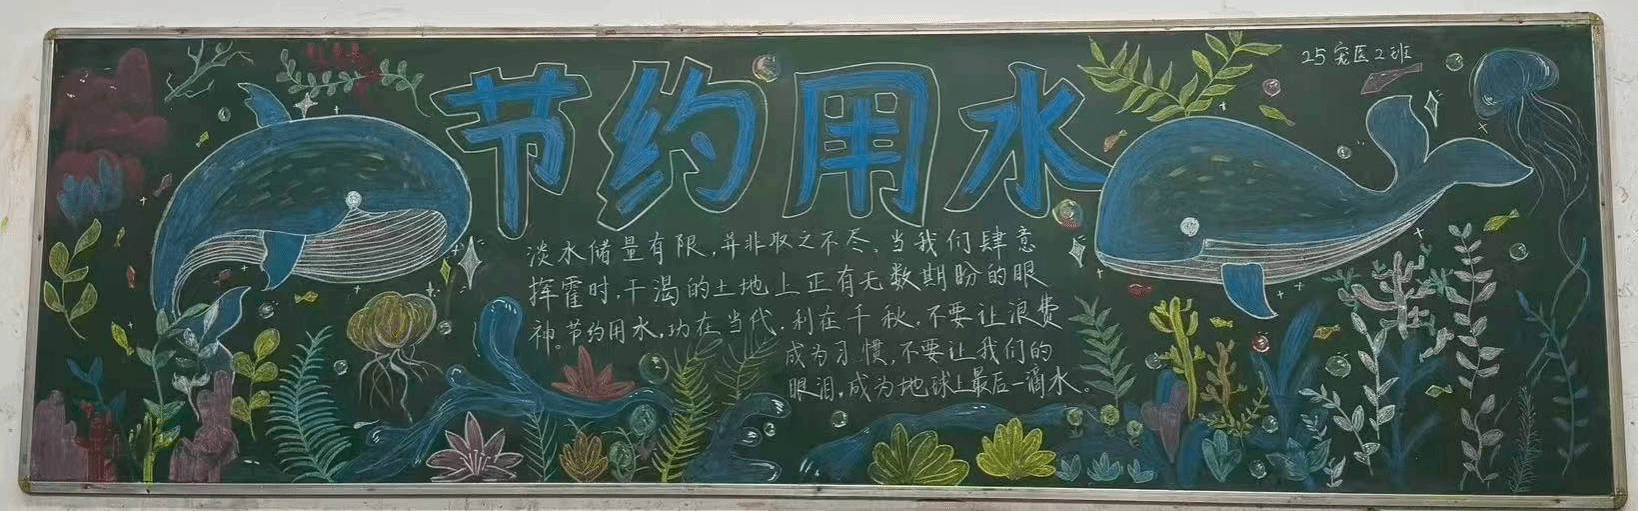 25宠医2班
节约用水
淡水储量有限,并非取之不尽,当我们肆意
挥霍时,干渴的土地上正有无数期盼的眼
神。节约用水,功在当代,利在千秋,不要让浪费
成为习惯,不要让我们的
眼泪,成为地球上最后一滴水。